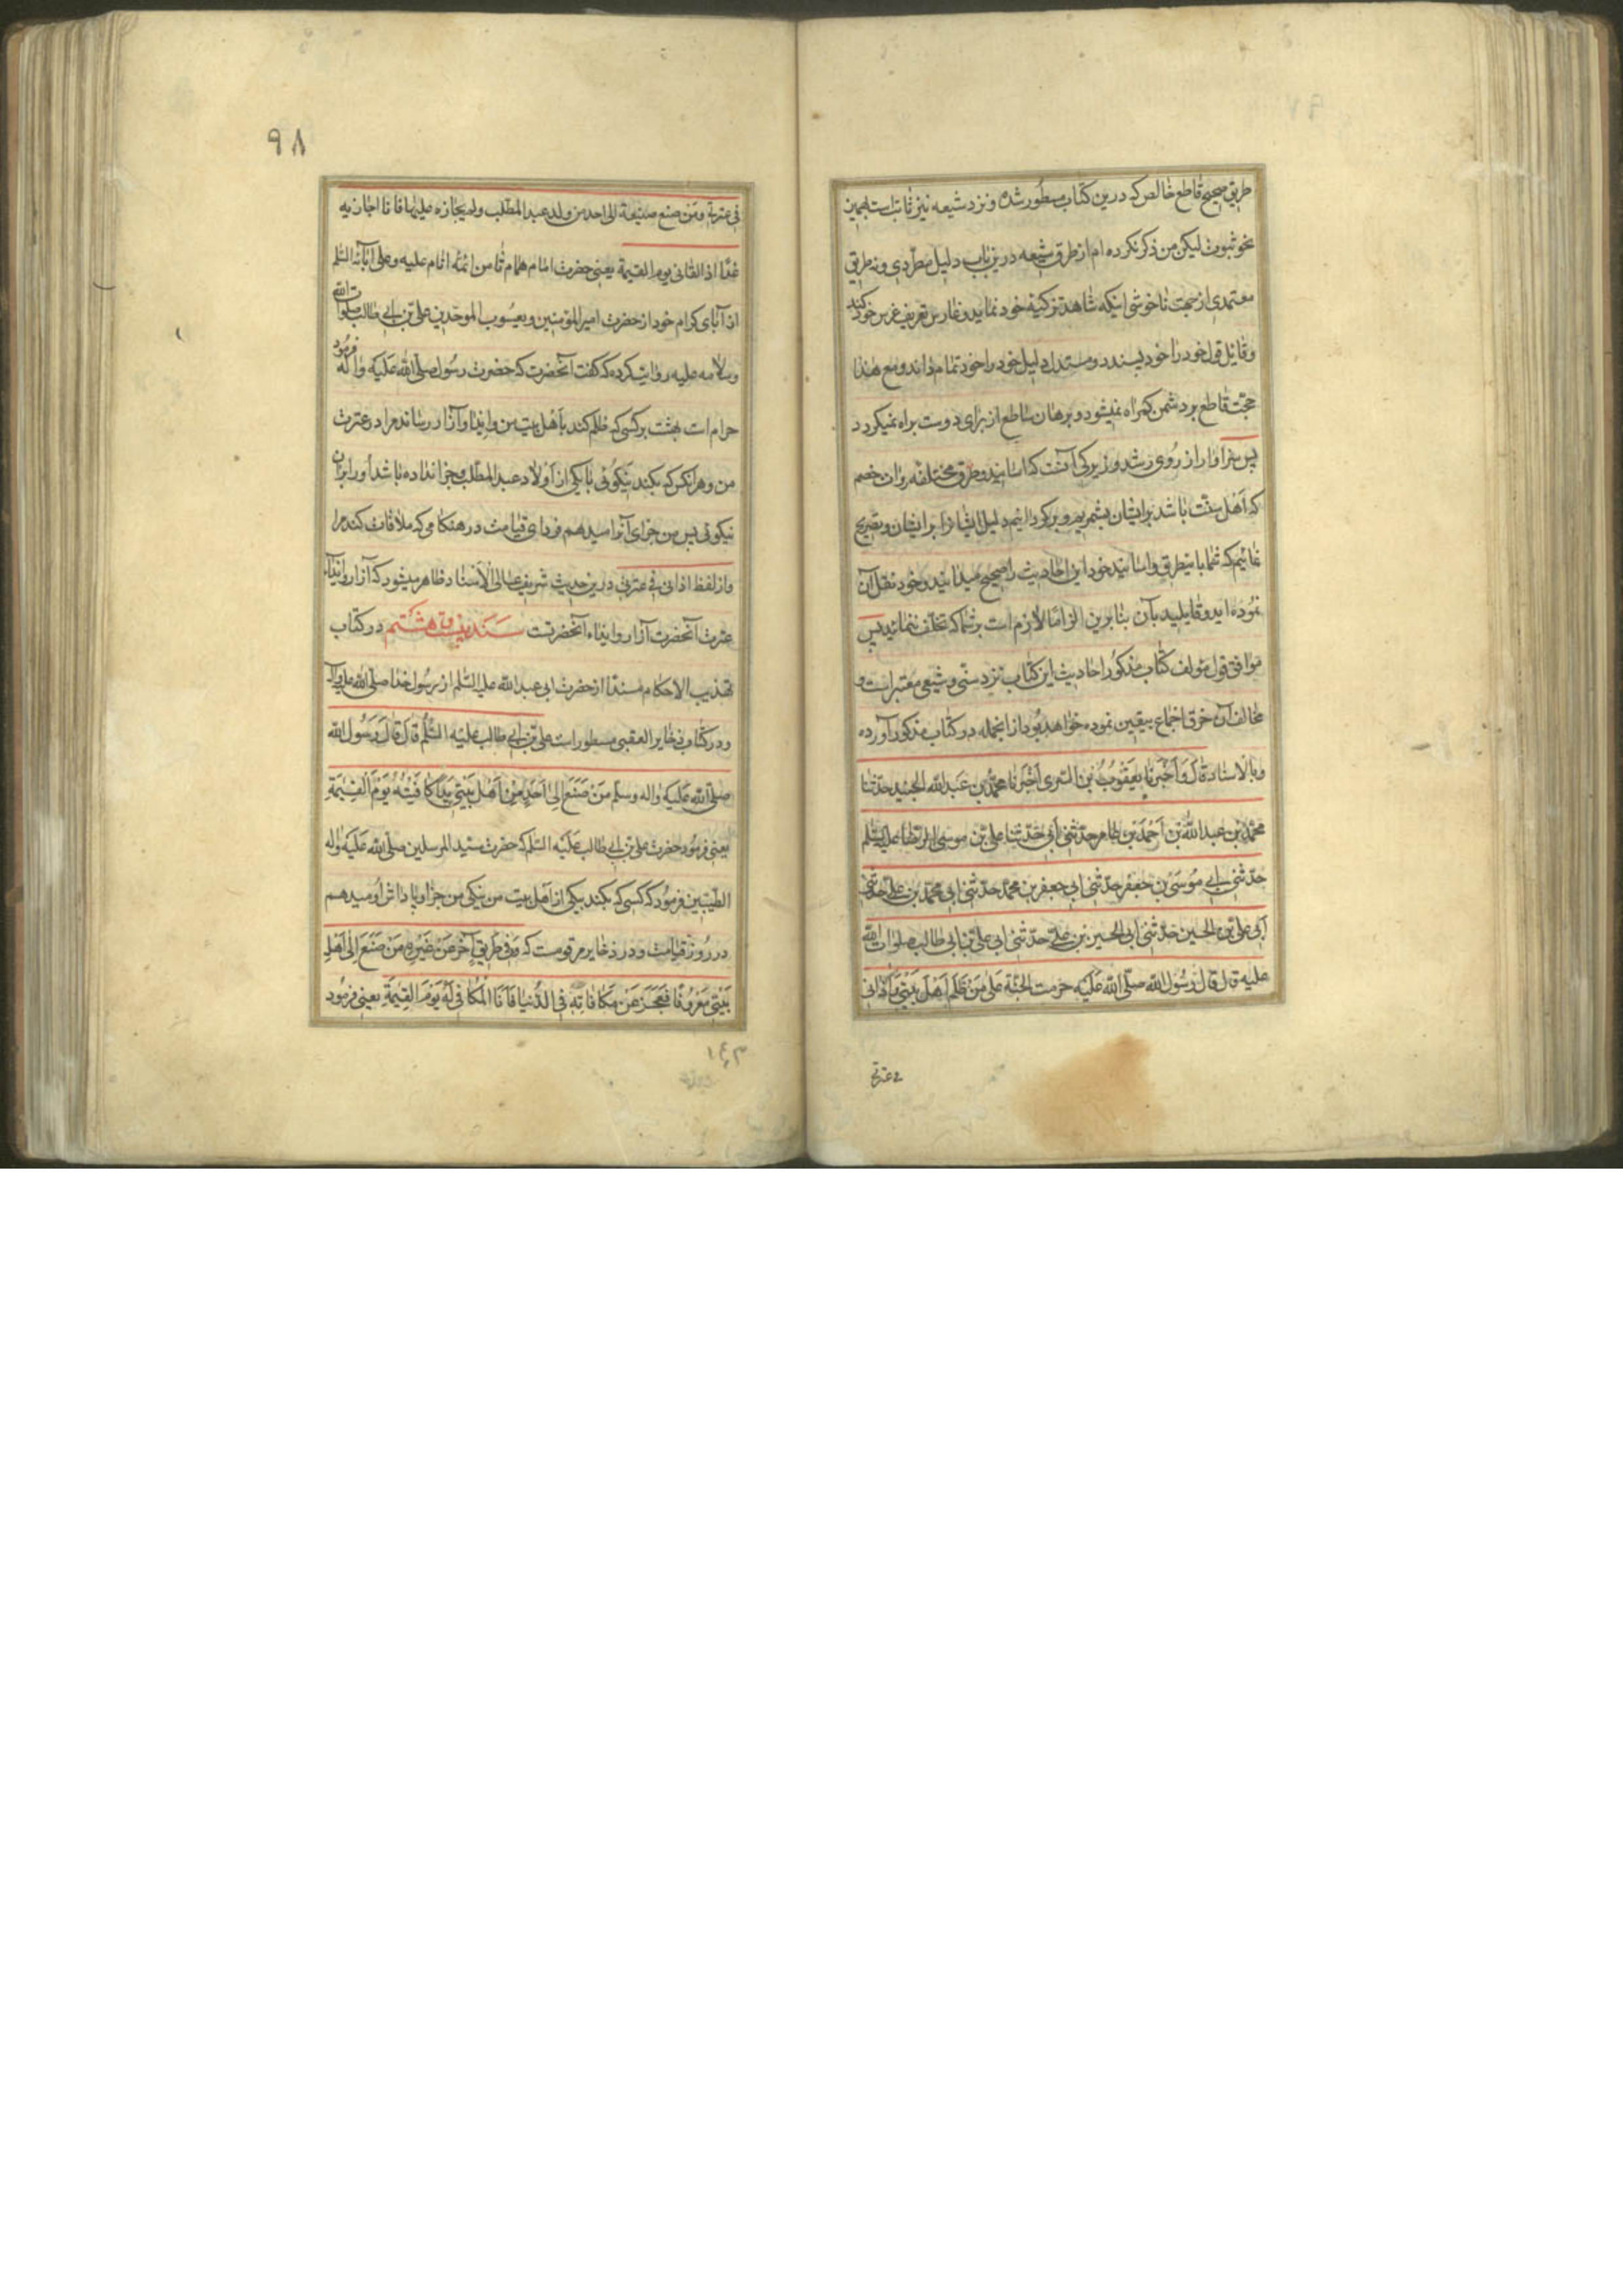 طریق صحیح قاطع خالص که درین کتاب مسطور شده و نزد شیعه نیز ثابتست بهمین
نحو ثبوت لیکن من ذکر نکرده ام از طرق شیعه درین باب دلیل مطردی و نه طریق
معتمدی از جهت ناخوشی اینکه شاهد تزکیه خود نماید و غارس تعریف غرس خود کند
و قایل قول خود را خود پسندد و مستدل دلیل خود را خود تمام داند و مع هذا
حجت قاطع بر دشمن کمراه نمیشود و برهان ساطع از برای دوست براه نمیکردد
پس سزاوار از روی رشد و زیرکی آنست که اسانید و طرق مختلفه روات خصم
که اهل سنت باشد بر ایشان بشمریم و برکردانیم دلیل ایشانرا بر ایشان و تصریح
نمائیم که شما باین طرق و اسانید خود این احادیث را صحیح میدانید و خود نقل آن
نموده اید و قایلید بآن بنابرین الزاما لازم است بر شما که تخلف ننمائید پس
موافق قول مؤلف کتاب مذکور احادیث این کتاب نزد سنی و شیعی معتبر است و
مخالف آن خرق اجماع بیقین نموده خواهد بود از انجمله در کتاب مذکور آورده
و بالاسناد قال و اخبرنا یعقوب بن السری اخبرنا محمد بن عبد الله الجنید حدثنا
محمد بن عبد الله بن احمد بن عامر حدثنی ابی حدثنا علی بن موسی الرضا علیه السلم
حدثنی ابی موسی بن جعفر حدثنی ابی جعفر بن محمد حدثنی ابی محمد بن علی حدثنی
ابی علی بن الحسین حدثنی ابی الحسین بن علی حدثنی ابی علی بن ابی طالب صلوات الله
علیه قال قال رسول الله صلی الله علیه حرمت الجنة علی من ظلم اهل بیتی و آذانی
فی عترتی
۹۸
فی عترتی و من صنع صنیعة الی احد من ولد عبد المطلب و لم یجازه علیها فانا اجازیه
غدا اذا لقانی یوم القیمة یعنی حضرت امام همام ثامن ائمه انام علیه و علی آبائه السلم
از آبای کرام خود از حضرت امیر المؤمنین و یعسوب الموحدین علی بن ابی طالب صلوات الله
و سلامه علیه روایت کرده که گفت آنحضرت که حضرت رسول صلی الله علیه و اله فرمود
حرام است بهشت بر کسی که ظلم کند باهل بیت من و ایذا و آزار رساند مرا در عترت
من و هر انکس که بکند نیکوئی با یکی از اولاد عبد المطلب و جزا نداده باشد او را بران
نیکوئی پس من جزای آنرا میدهم فردای قیامت در هنکامی که ملاقات کند مرا
و از لفظ اذانی فی عترتی درین حدیث شریف عالی الاسناد ظاهر میشود که آزار و ایذاء
عترت آنحضرت آزار و ایذاء آنحضرتست سند بیست و هشتم در کتاب
تهذیب الاحکام مسندا از حضرت ابی عبد الله علیه السلم از رسول خدا صلی الله علیه و آله
و در کتاب ذخایر العقبی مسطور است علی بن ابی طالب علیه السلم قال قال رسول الله
صلی الله علیه واله وسلم من صنع الی احد من اهل بیتی یدا کافیته یوم القیمة
یعنی فرمود حضرت علی بن ابی طالب علیه السلم که حضرت سید المرسلین صلی الله علیه واله
الطیبین فرمود که کسی که بکند بیکی از اهل بیت من نیکی من جزا و پاداش او میدهم
در روز قیامت و در ذخایر مرقومست که و فی طریق آخر عن غیره من صنع الی اهل
بیتی معروفا فعجز عن مکافاته فی الدنیا فانا المکافی له یوم القیمة یعنی فرمود